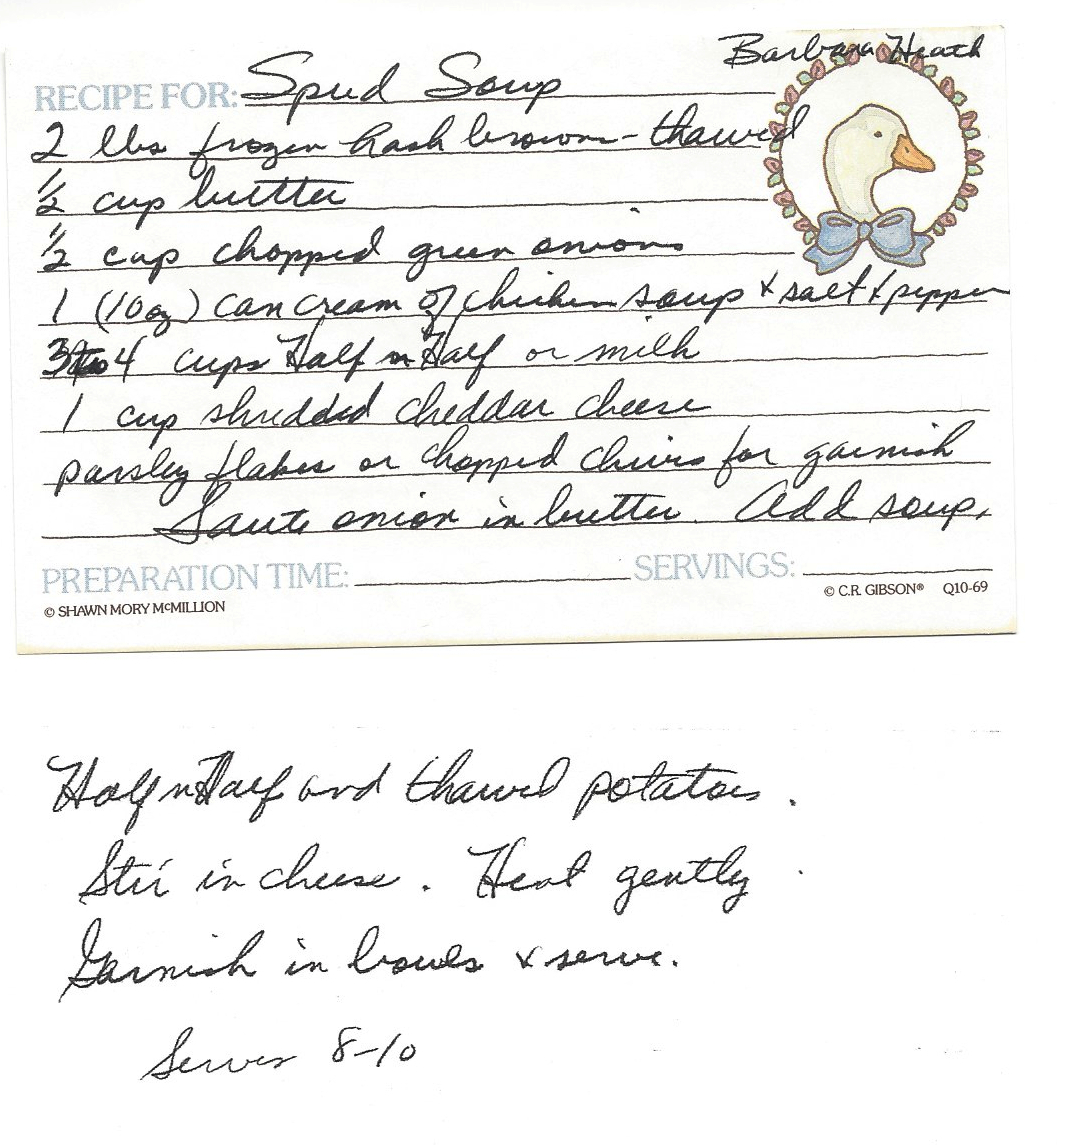 Barbara Heath
RECIPE FOR: Spud Soup
2 lbs frozen hash browns - thawed
1/2 cup butter
1/2 cup chopped green onions
1 (10 oz) can cream of chicken soup & salt & pepper
3 to 4 cups Half n Half or milk
1 cup shredded cheddar cheese
parsley flakes or chopped chives for garnish
Saute onion in butter. Add soup,
PREPARATION TIME: SERVINGS:
© SHAWN MORY McMILLION © C.R. GIBSON® Q10-69
Half n Half and thawed potatoes.
Stir in cheese. Heat gently
Garnish in bowls & serve.
Serves 8-10